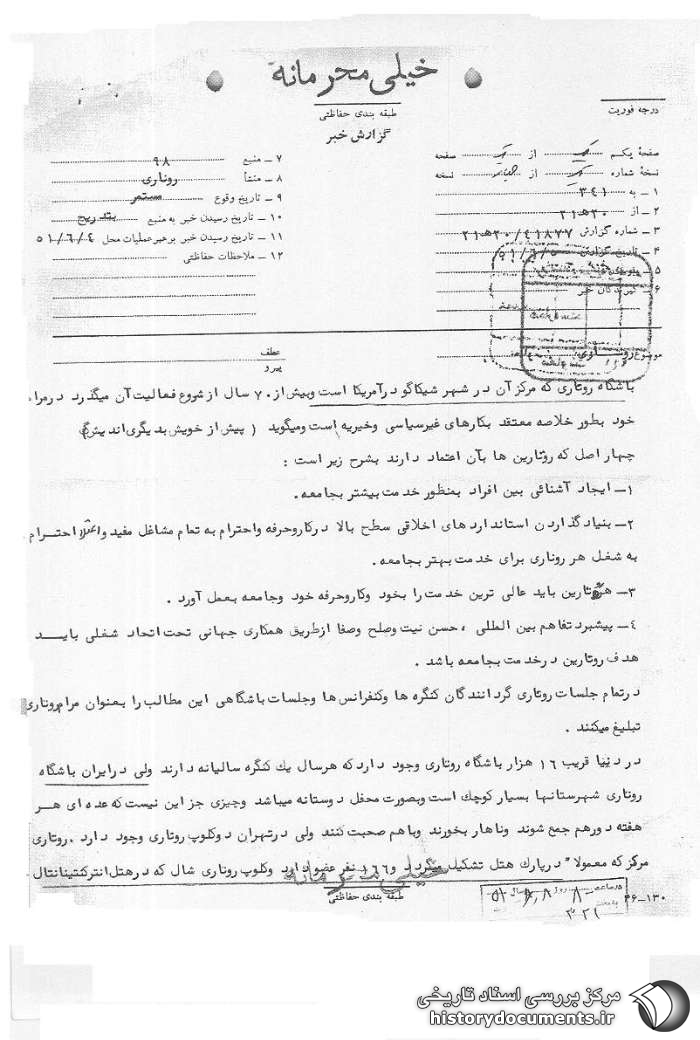 خیلی محرمانه
طبقه بندی حفاظتی
گزارش خبر
درجه فوریت
صفحهٔ یکم از صفحه
نسخهٔ شماره از نسخه
۱ـ به ۳۴۱
۲ـ از ۲۰هـ۲۱
۳ـ شماره گزارش ۲۰/۴۱۸۷۷هـ۲۱
۴ـ تاریخ گزارش
۵ـ
۶ـ گیرندگان خبر
۷ـ منبع ۹۸
۸ـ منشأ روتاری
۹ـ تاریخ وقوع مستمر
۱۰ـ تاریخ رسیدن خبر به منبع بتدریج
۱۱ـ تاریخ رسیدن خبر برهبر عملیات محل ۵۱/۶/۴
۱۲ـ ملاحظات حفاظتی
موضوع
عطف
پیرو
باشگاه روتاری که مرکز آن در شهر شیکاگو در آمریکا است وبیش از ۷۰ سال از شروع فعالیت آن میگذرد درمرام
خود بطور خلاصه معتقد بکارهای غیرسیاسی وخیریه است ومیگوید ( پیش از خویش بدیگری اندیش )
چهار اصل که روتارین ها بآن اعتماد دارند بشرح زیر است :
۱ـ ایجاد آشنائی بین افراد بمنظور خدمت بیشتر بجامعه .
۲ـ بنیاد گذاردن استانداردهای اخلاقی سطح بالا درکاروحرفه واحترام به تمام مشاغل مفید و احترام
به شغل هر روتاری برای خدمت بهتر بجامعه .
۳ـ هر روتارین باید عالی ترین خدمت را بخود وکاروحرفه خود وجامعه بعمل آورد .
۴ـ پیشبرد تفاهم بین المللی ، حسن نیت وصلح وصفا ازطریق همکاری جهانی تحت اتحاد شغلی بایـد
هدف روتارین درخدمت بجامعه باشد .
درتمام جلسات روتاری گردانندگان کنگره ها وکنفرانس ها وجلسات باشگاهی این مطالب را بعنوان مرام روتاری
تبلیغ میکنند .
در دنیا قریب ۱۶ هزار باشگاه روتاری وجود دارد که هرسال یك کنگره سالیانه دارند ولی درایران باشگاه
روتاری شهرستانها بسیار کوچك است وبصورت محفل دوستانه میباشد وچیزی جز این نیست که عده ای هر
هفته دورهم جمع شوند وناهار بخورند وباهم صحبت کنند ولی درتهران دوکلوپ روتاری وجود دارد . روتاری
مرکز که معمولا" درپارك هتل تشکیل میگردد و ۱۶۶ نفر عضو دارد وکلوپ روتاری شمال که درهتل انترکنتیننتال
خیلی محرمانه
طبقه بندی حفاظتی
۳۶ـ۱۳۰
مرکز بررسی اسناد تاریخی
historydocuments.ir